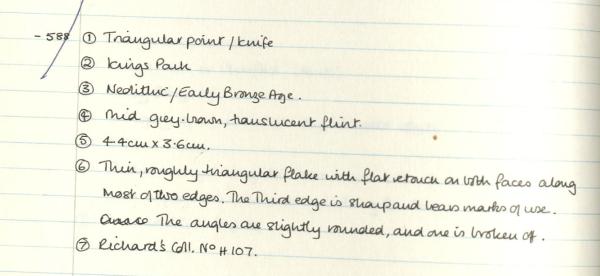 - 588 ① Triangular point/knife
② Kings Park
③ Neolithic/Early Bronze Age.
④ Mid grey-brown, translucent flint.
⑤ 4.4cm x 3.6cm.
⑥ Thin, roughly triangular flake with flat retouch on both faces along
most of two edges. The Third edge is sharp and bears marks of use.
The angles are slightly rounded, and one is broken off.
⑦ Richard's Coll. No H 107.